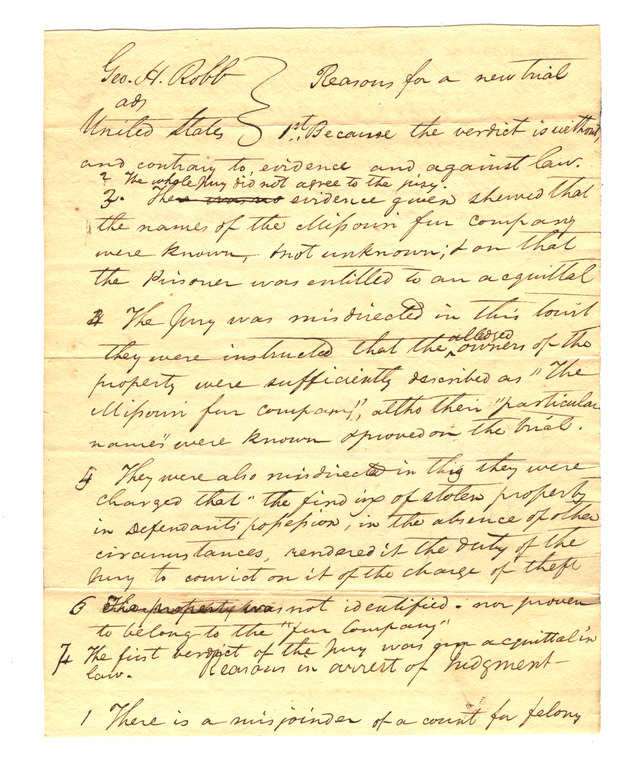 Geo. H. Robb
ads
United States
Reasons for a new trial
1st. Because the verdict is without,
and contrary to, evidence and against law.
2 The whole Jury did not agree to the
3. The was no evidence given shewed that
the names of the Missouri fur company
were known, & not unknown; & on that
the Prisoner was entitled to an acquittal
4 The Jury was misdirected in this Court
they were instructed that the alledged owners of the
property were sufficiently described as "The
Missouri fur company", altho their "particular
names" were known & proved on the trial.
5 They were also misdirected in this they were
charged that "the finding of stolen property
in Defendants possession, in the absence of other
circumstances, rendered it the duty of the
Jury to convict on it of the charge of theft
6 The property was not identified - nor proven
to belong to the "fur Company"
7 The first verdict of the Jury was an acquittal in
law.
Reasons in arrest of Judgment -
1 There is a misjoinder of a count for felony